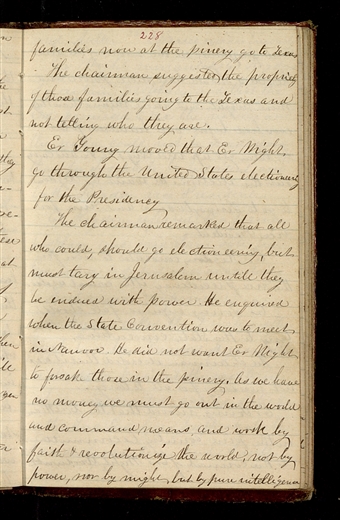 228
families now at the pinery go to Texas
The chairman suggested the propriety
of those families going to the Texas and
not telling who they are.
Er moved that Er Wight
go through the United States electioneering
for the Presidency
The chairman remarked that all
who could, should go electioneering, but
must tary in Jerusalem untill they
be endued with power. He enquired
when the State Convention was to meet
in Nauvoo. He did not want Er Wight
to forsake those in the pinery. As we have
no money we must go out in the world
and command means, and work by
faith & revolutionize the world, not by
power, nor by might, but by pure intelligence